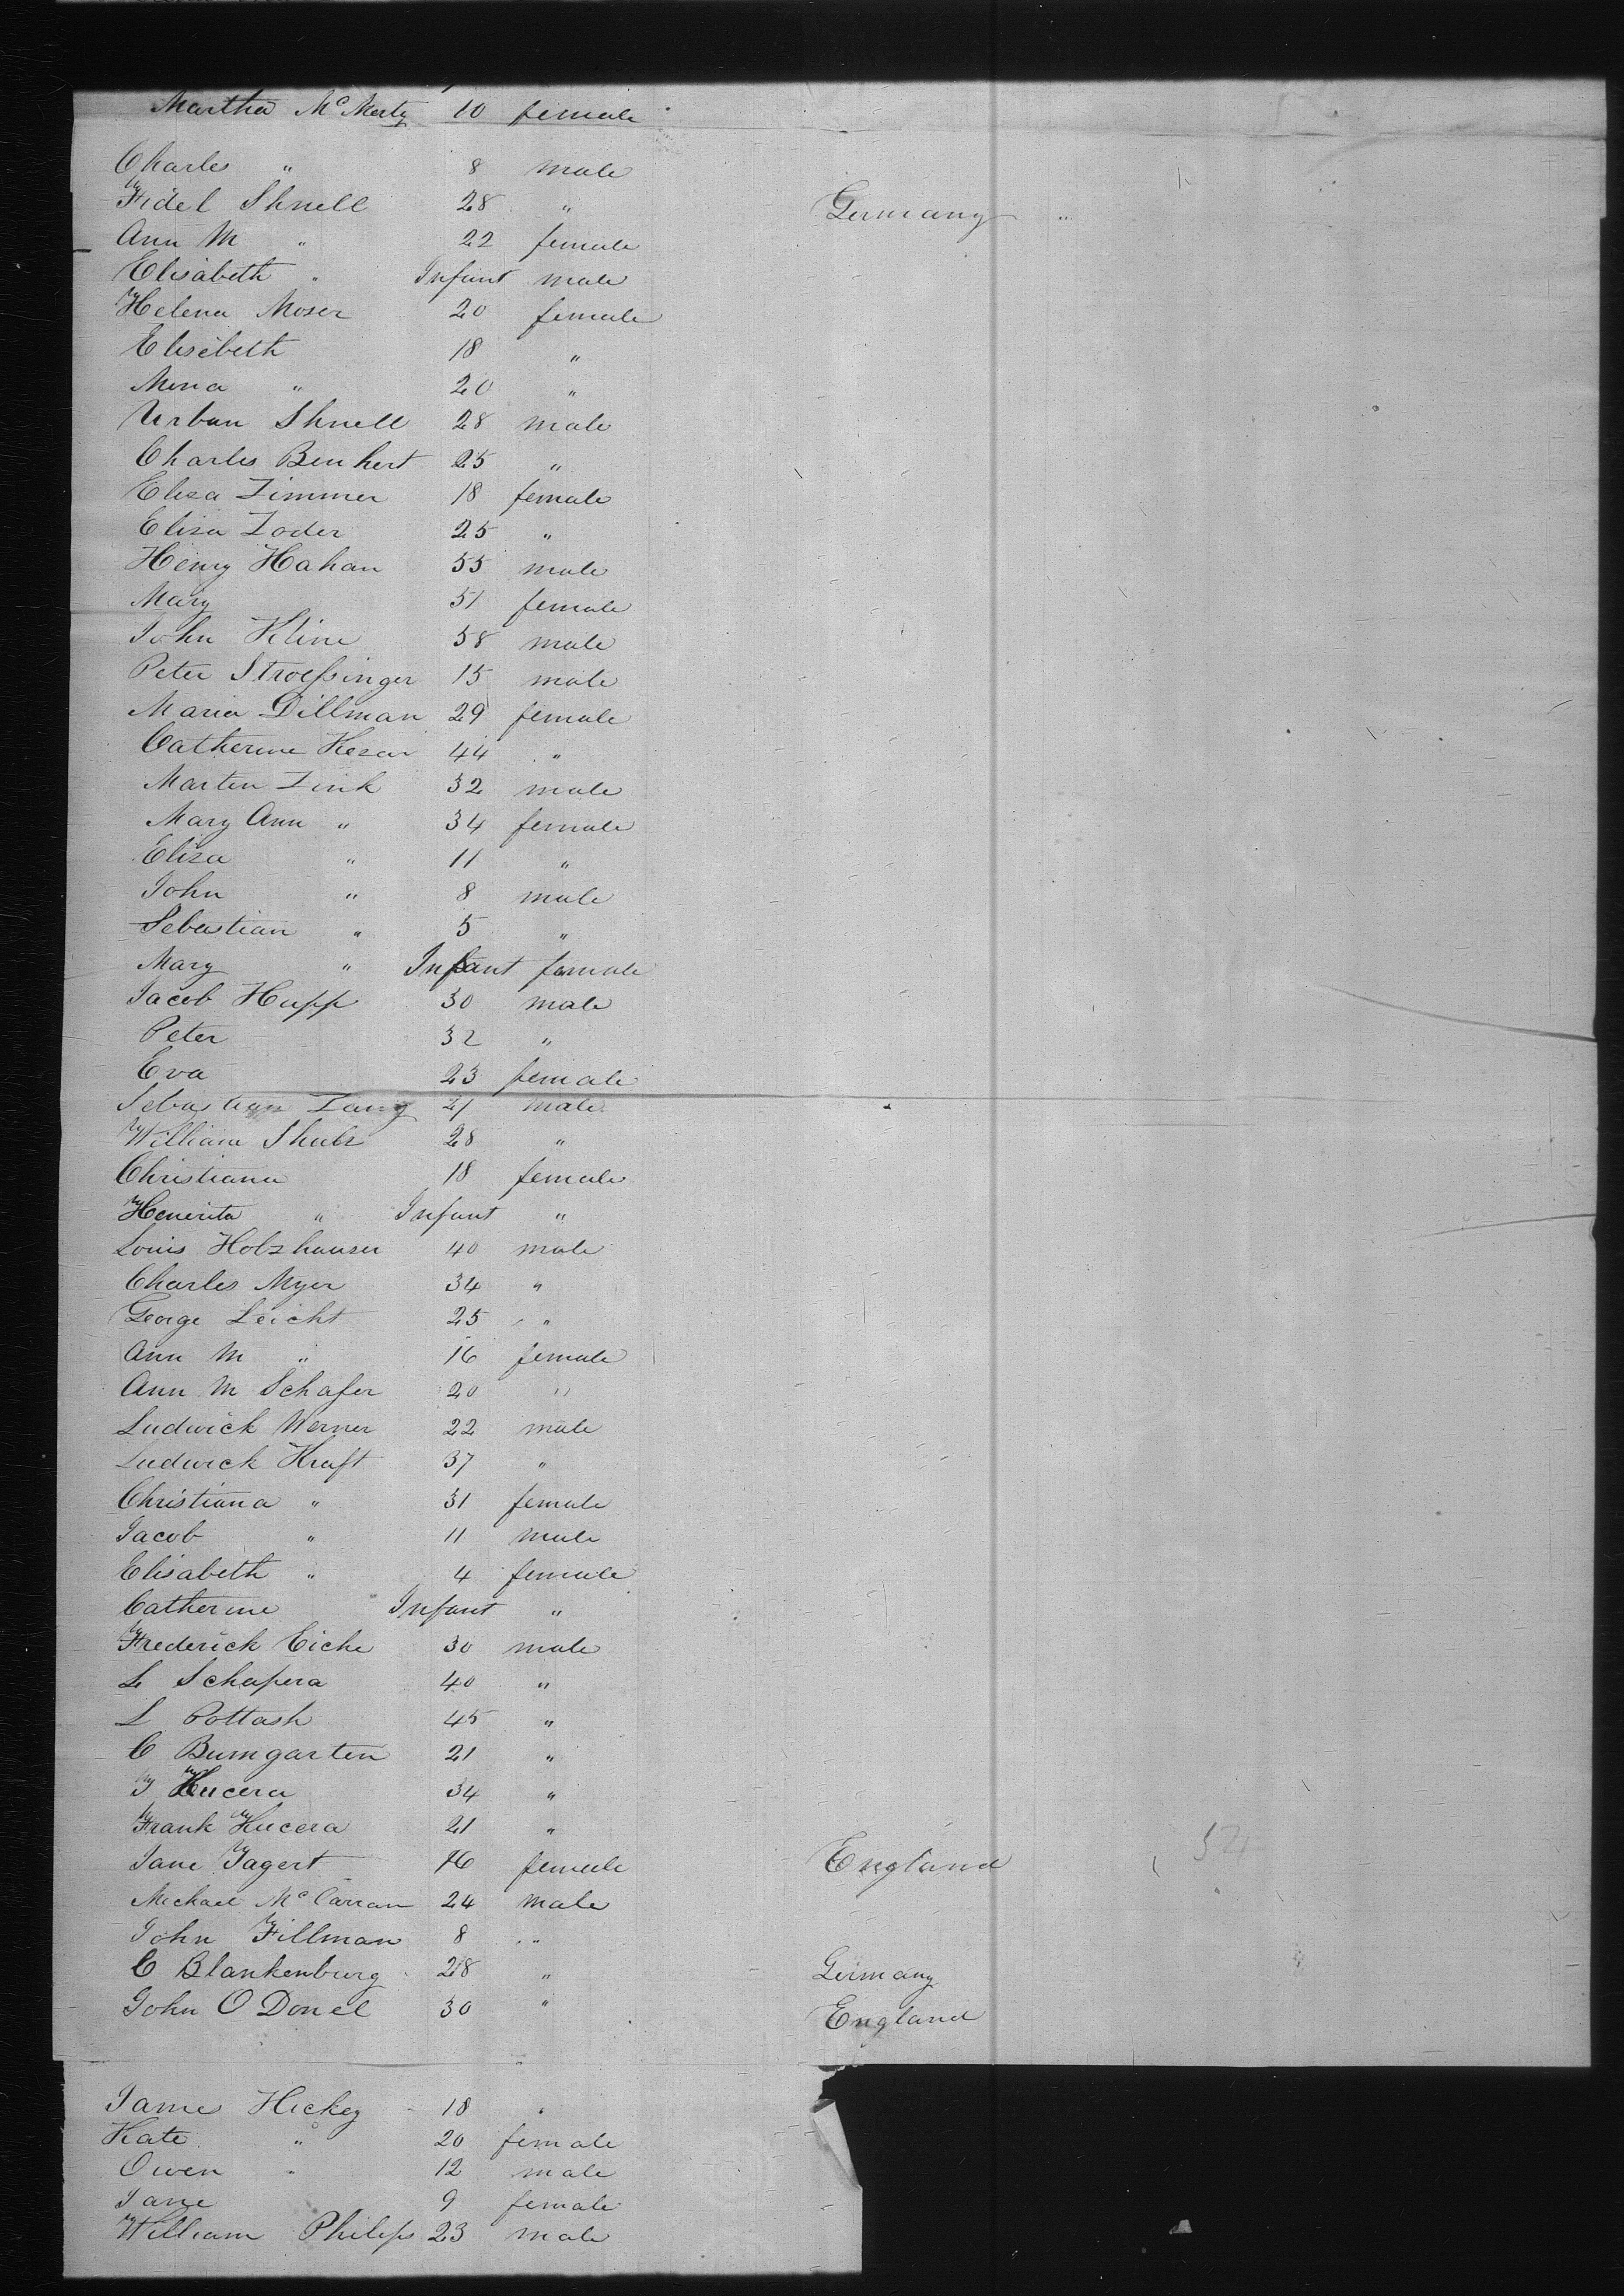 Martha McMerty 10 female
Charles " 8 male
Fidel Shnell 28 " Germany "
Ann M " 22 female
Elisabeth " Infant male
Helena Moser 20 female
Elisebeth 18 "
Mena " 20 "
Urban Shnell 28 male
Charles Benhert 25 "
Elisa Zimmer 18 female
Elisa Zoder 25 "
Henry Hahan 55 male
Mary 51 female
John Kline 58 male
Peter Stroessinger 15 male
Maria Dillman 29 female
Catherine 44 "
Marten Zink 32 male
Mary Ann " 34 female
Eliza " 11 "
John " 8 male
Sebastian " 5 "
Mary " Infant female
Jacob Hupp 30 male
Peter 32 "
Eva 23 female
Sebastian Zang 21 male
William Shulz 28 "
Christiana 18 female
Henerita " Infant "
Louis Holzhauser 40 male
Charles Myer 34 "
George Leicht 25 "
Ann M " 16 female
Ann M Schafer 20 "
Ludwick Werner 22 male
Ludwick Kraft 37 "
Christiana " 31 female
Jacob " 11 male
Elisabeth " 4 female
Catherine Infant "
Frederick Eiche 30 male
L Schapera 40 "
L Pottash 45 "
C Bumgarten 21 "
J Kucera 34 "
Frank Kucera 21 "
Jane Tagert 16 female England
Michael McCarran 24 male
John Fillman 8 "
C Blankenburg 28 " Germany
John O Donel 30 " England
James Hickey 18 "
Kate " 20 female
Owen " 12 male
Jane 9 female
William Philips 23 male